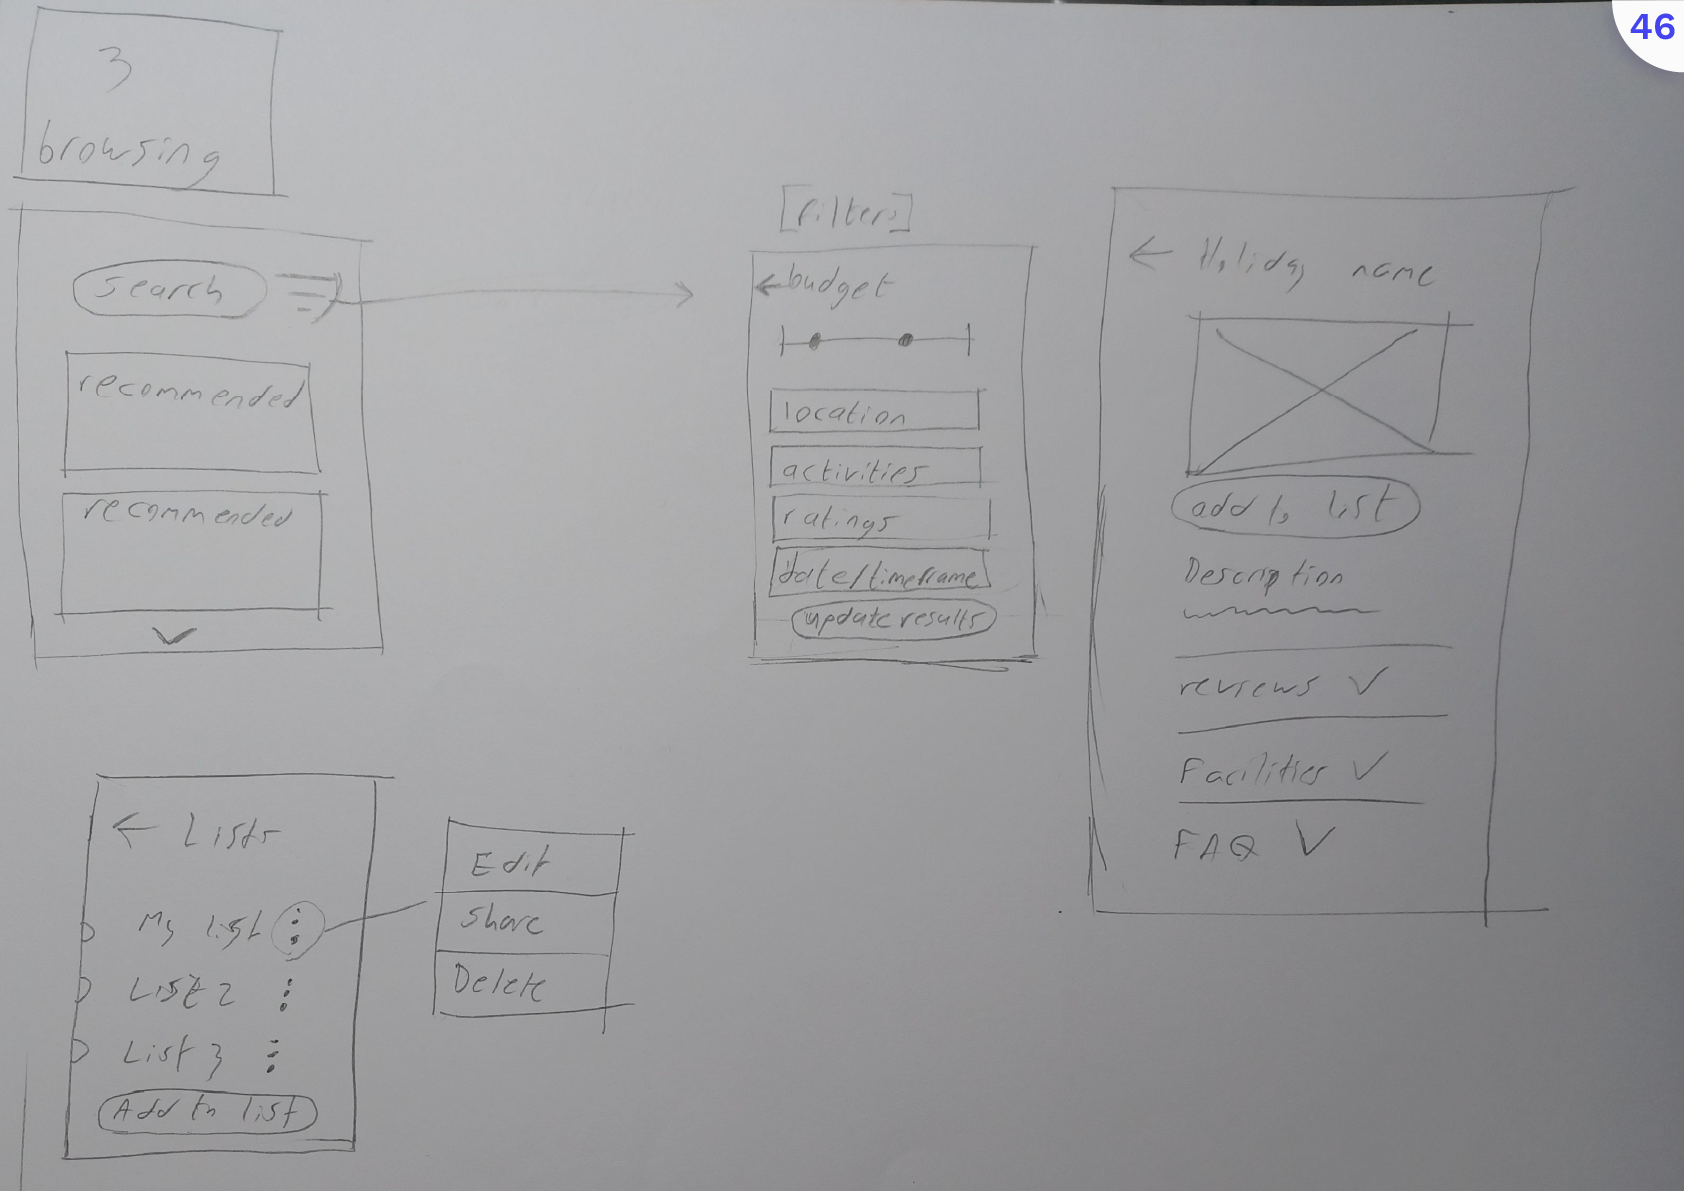 46
3
browsing
search
recommended
recommended
[filters]
budget
location
activities
ratings
date/timeframe
update results
Holiday name
add to list
Description
reviews
Facilities
FAQ
Lists
My list
List 2
List 3
Add to list
Edit
Share
Delete